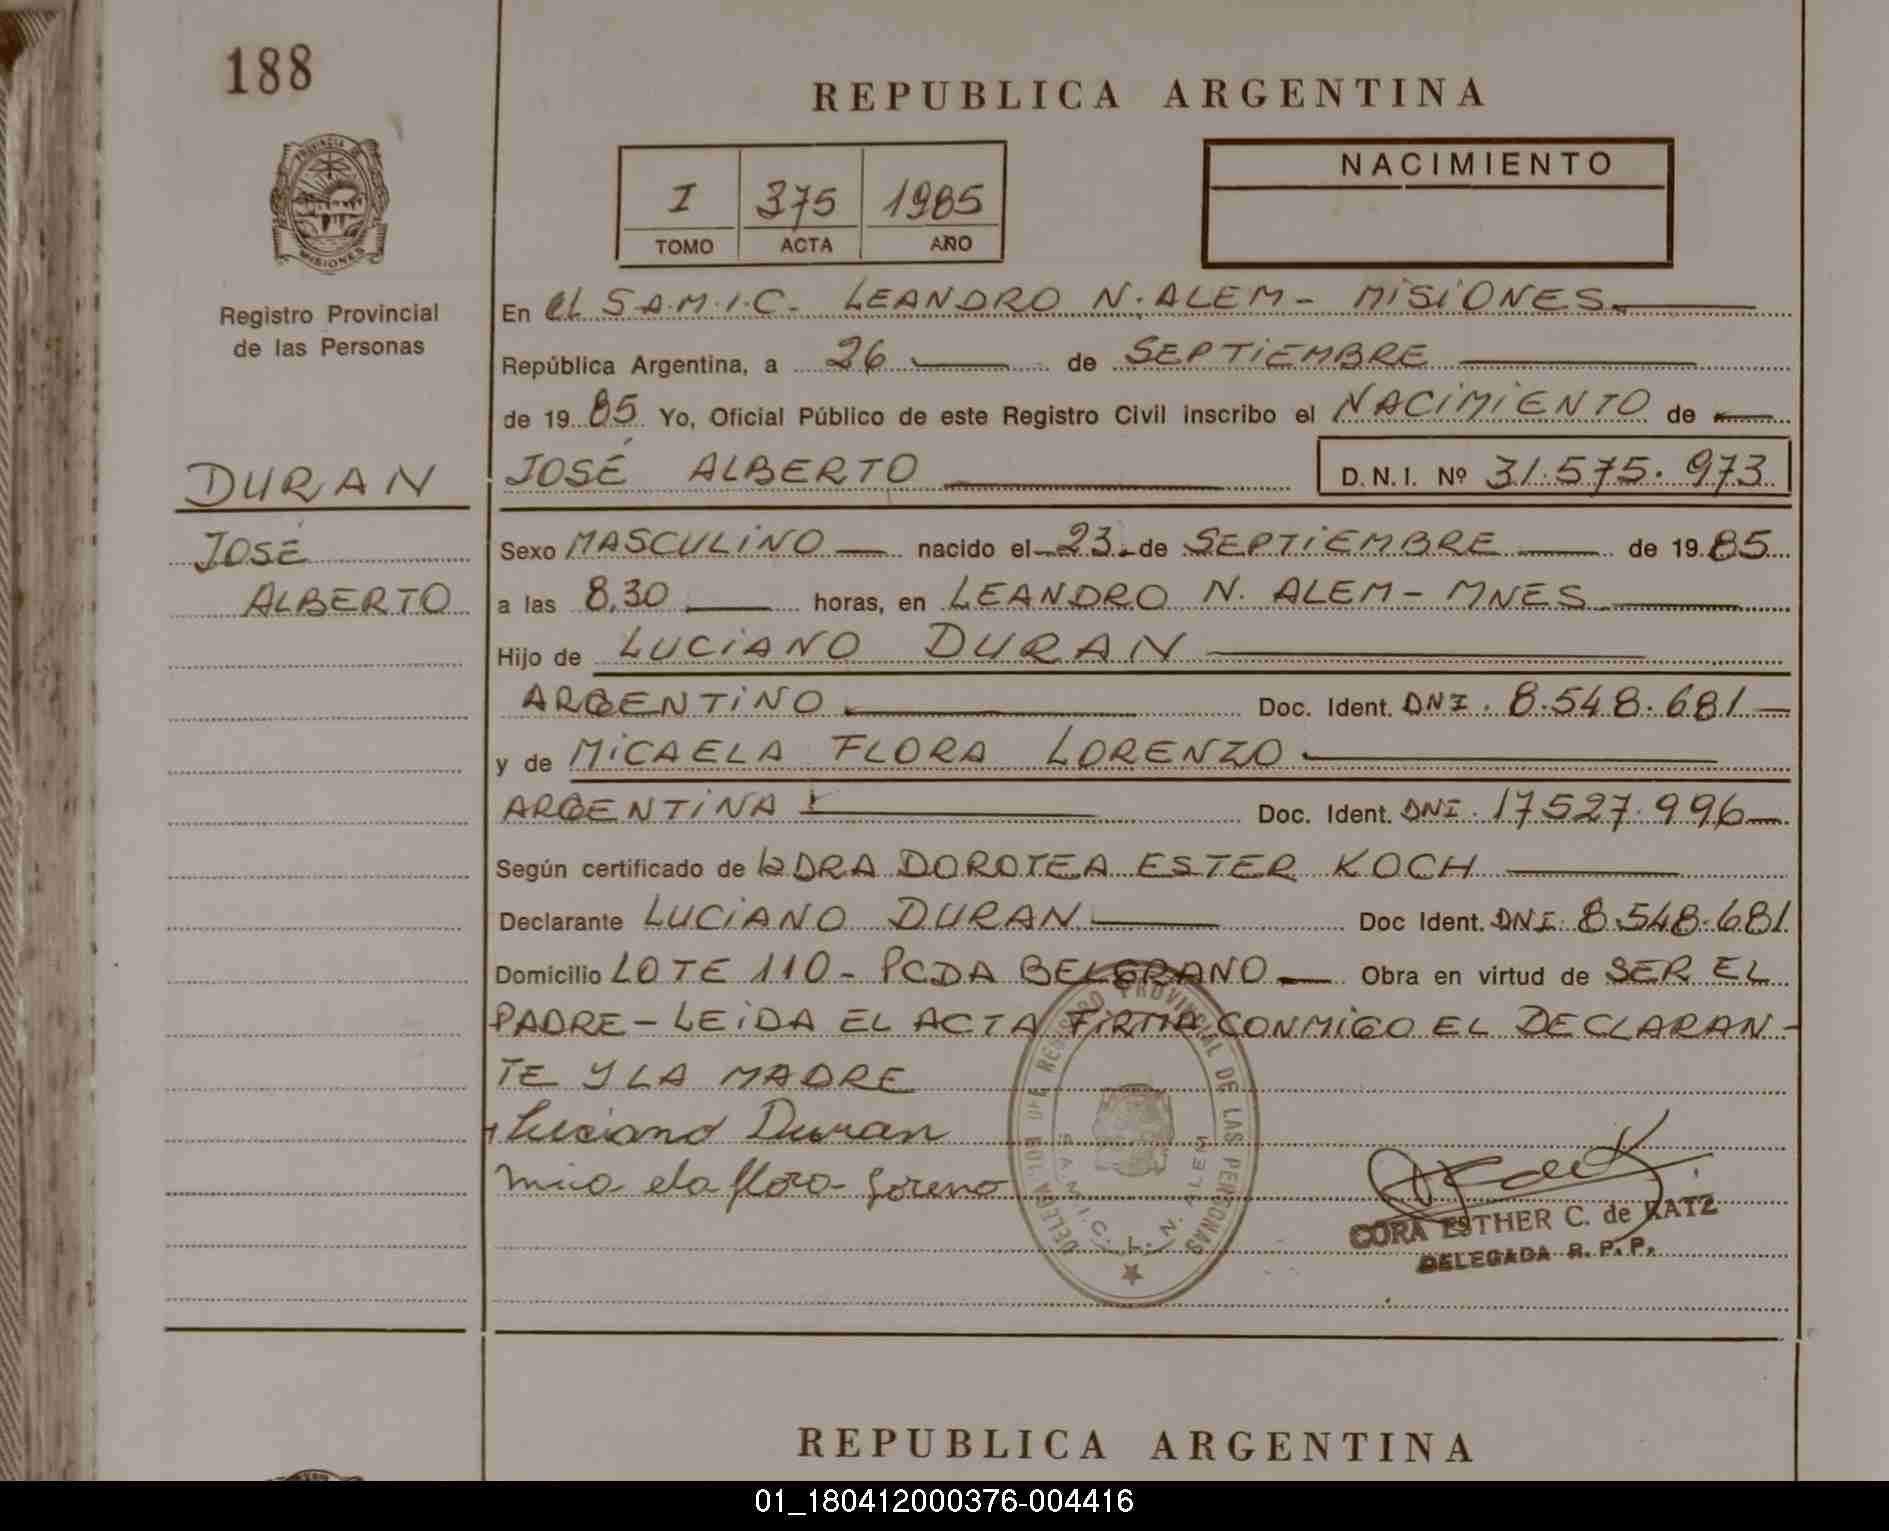 188
REPUBLICA ARGENTINA
PROVINCIA DE
MISIONES
Registro Provincial
de las Personas
I 375 1985
TOMO ACTA AÑO
NACIMIENTO
En el S.A.M.I.C. LEANDRO N. ALEM - MISIONES
República Argentina, a 26 de SEPTIEMBRE
de 1985 Yo, Oficial Público de este Registro Civil inscribo el NACIMIENTO de
DURAN
JOSÉ ALBERTO D.N.I. Nº 31.575.973
JOSÉ
ALBERTO
Sexo MASCULINO nacido el 23 de SEPTIEMBRE de 1985
a las 8,30 horas, en LEANDRO N. ALEM - MNES
Hijo de LUCIANO DURAN
ARGENTINO Doc. Ident. DNI. 8.548.681
y de MICAELA FLORA LORENZO
ARGENTINA Doc. Ident. DNI. 17527.996
Según certificado de la DRA DOROTEA ESTER KOCH
Declarante LUCIANO DURAN Doc Ident. DNI 8.548.681
Domicilio LOTE 110 - PCDA BELGRANO Obra en virtud de SER EL
PADRE - LEIDA EL ACTA FIRMA CONMIGO EL DECLARAN-
TE Y LA MADRE
Luciano Duran
mica ela flora Loreno
DELEGACION DEL REGISTRO PROVINCIAL DE LAS PERSONAS
S.A.M.I.C. L. N. ALEM
CORA ESTHER C. de RATZ
DELEGADA R. P. P.
REPUBLICA ARGENTINA
01_180412000376-004416